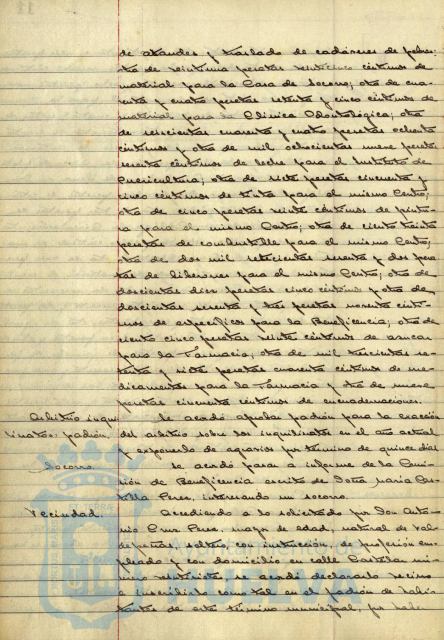 de ataudes y traslado de cadáveres de pobres;
otra de veintiuna pesetas veinticinco céntimos de
material para la Casa de Socorro; otra de cua-
renta y cuatro pesetas setenta y cinco céntimos de
material para la Clínica Odontológica; otra
de seiscientas cuarenta y cuatro pesetas ochenta
céntimos y otra de mil ochocientas nueve pesetas
sesenta céntimos de leche para el Instituto de
Puericultura; otra de siete pesetas cincuenta y
cinco céntimos de tinta para el mismo Centro;
otra de cinco pesetas veinte céntimos de pintu-
ra para el mismo Centro; otra de ciento treinta
pesetas de combustible para el mismo Centro;
otra de dos mil setecientas sesenta y dos pese-
tas de biberones para el mismo Centro; otra de
doscientas diez pesetas cinco céntimos y otra de
doscientas sesenta y tres pesetas noventa cénti-
mos de específicos para la Beneficencia; otra de
ciento cinco pesetas veinte céntimos de azucar
para la Farmacia; otra de mil trescientas se-
tenta y siete pesetas cuarenta céntimos de me-
dicamentos para la Farmacia y otra de nueve
pesetas cincuenta céntimos de encuadernaciones.
Arbitrio inqui-
linatos: padrón.
Se acordó aprobar padrón para la exacción
del arbitrio sobre los inquilinatos en el año actual
y exponerlo de agravios por término de quince días
Socorro.
Se acordó pasar a informe de la Comi-
sión de Beneficencia escrito de Doña María Cas-
tilla Perez, interesando un socorro.
Vecindad.
Accediendo a lo solicitado por Don Anto-
nio Cruz Perez, mayor de edad, natural de Val-
depeñas, soltero, con instrucción, de profesión em-
pleado y con domicilio en calle Castelar nú-
mero veintisiete, se acordó declararlo vecino
e inscribirlo como tal en el padrón de habi-
tantes de este término municipal, por haber
Ayuntamiento de